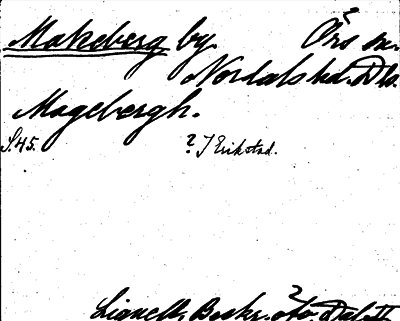 Makeberg by. Örs sn.
Nordals hd. Dls.
Magebergh.
S. 45. ? J Erikstad.
Lignell, Beskr. över Dalsl.